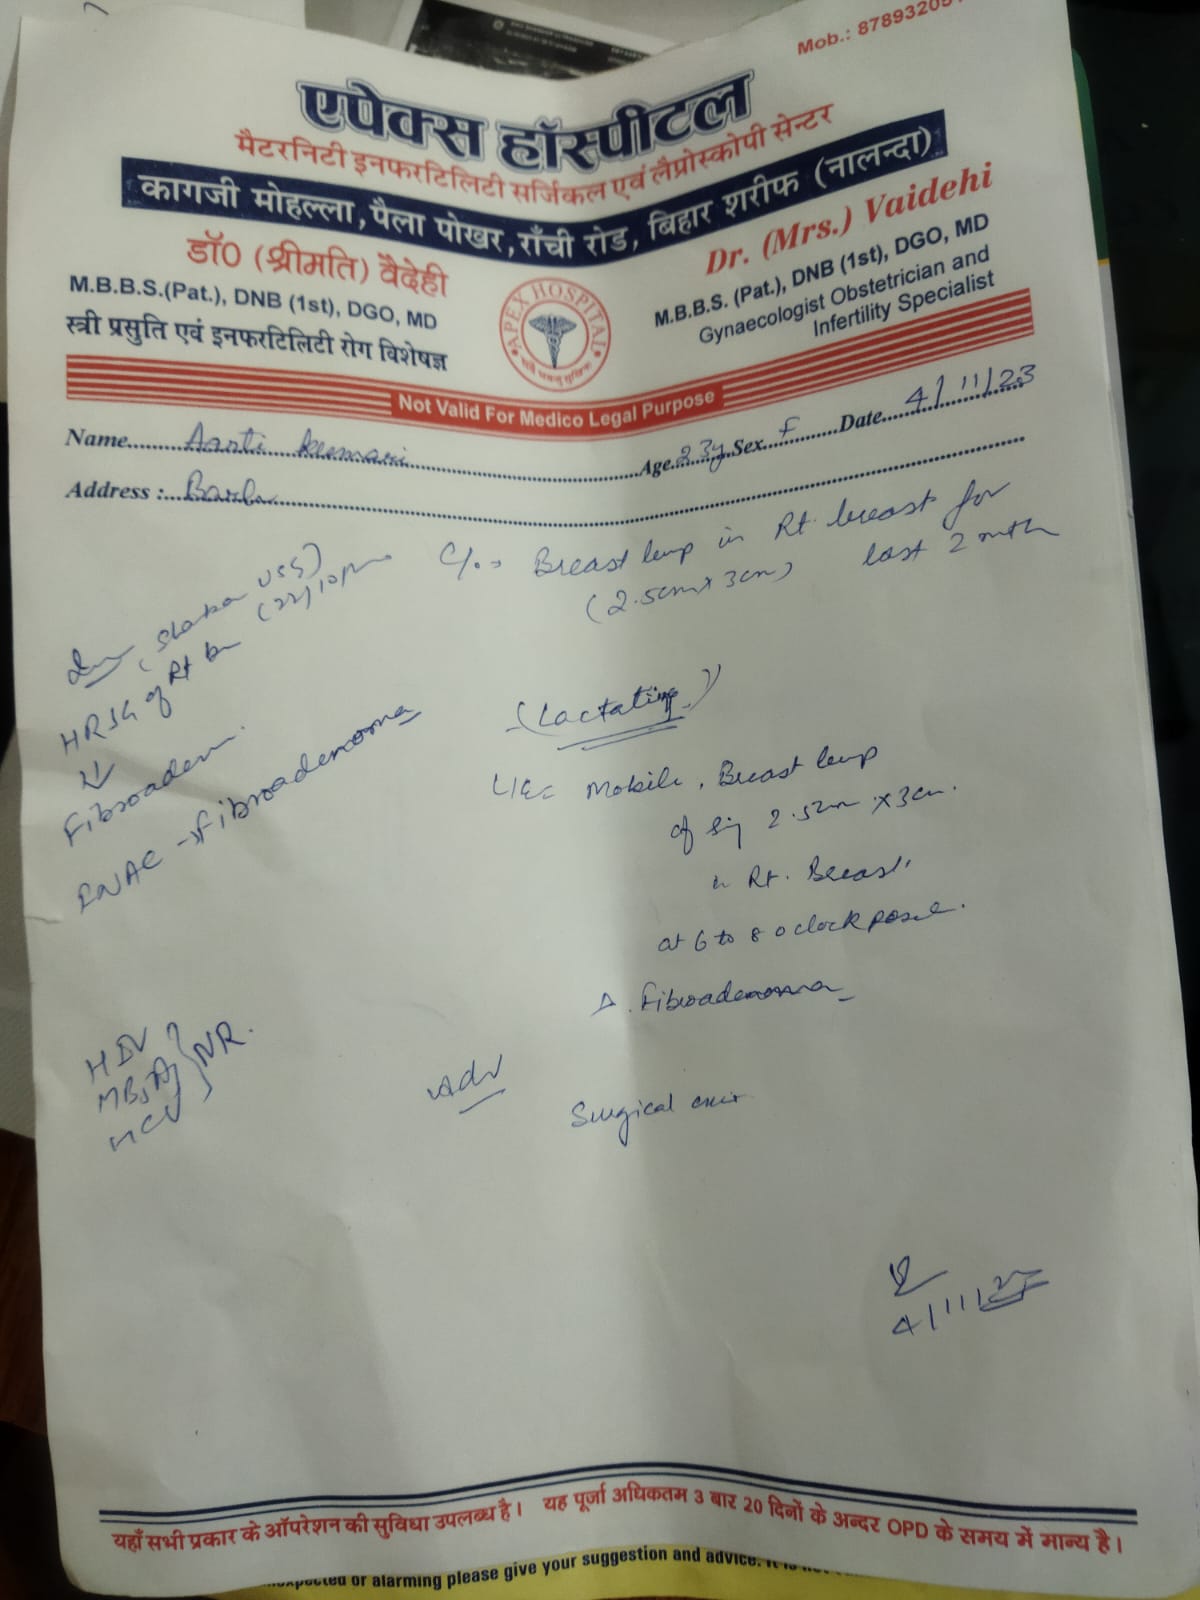 Mob.: 87893205
एपेक्स हॉस्पीटल
मैटरनिटी इनफरटिलिटी सर्जिकल एवं लैप्रोस्कोपी सेन्टर
कागजी मोहल्ला, पैला पोखर, राँची रोड, बिहार शरीफ (नालन्दा)
डॉ0 (श्रीमति) वैदेही
M.B.B.S.(Pat.), DNB (1st), DGO, MD
स्त्री प्रसुति एवं इनफरटिलिटी रोग विशेषज्ञ
APEX HOSPITAL
Dr. (Mrs.) Vaidehi
M.B.B.S. (Pat.), DNB (1st), DGO, MD
Gynaecologist Obstetrician and
Infertility Specialist
Not Valid For Medico Legal Purpose
Name Aarti Kumari Age 23y Sex F Date 4/11/23
Address :
C/o Breast lump in Rt breast for
(2.5cm x 3cm) last 2 mth
USG)
of Rt
Fibroadenoma
FNAC → fibroadenoma
(Lactating)
L/E Mobile, Breast lump
of 2.5cm x 3cm.
Rt. Breast
at 6 to 8 o clock
Δ. Fibroadenoma
HIV
HBsAg } NR.
HCV
Adv
Surgical
4/11/23
यहाँ सभी प्रकार के ऑपरेशन की सुविधा उपलब्ध है। यह पूर्जा अधिकतम 3 बार 20 दिनों के अन्दर OPD के समय में मान्य है।
or alarming please give your suggestion and advice.